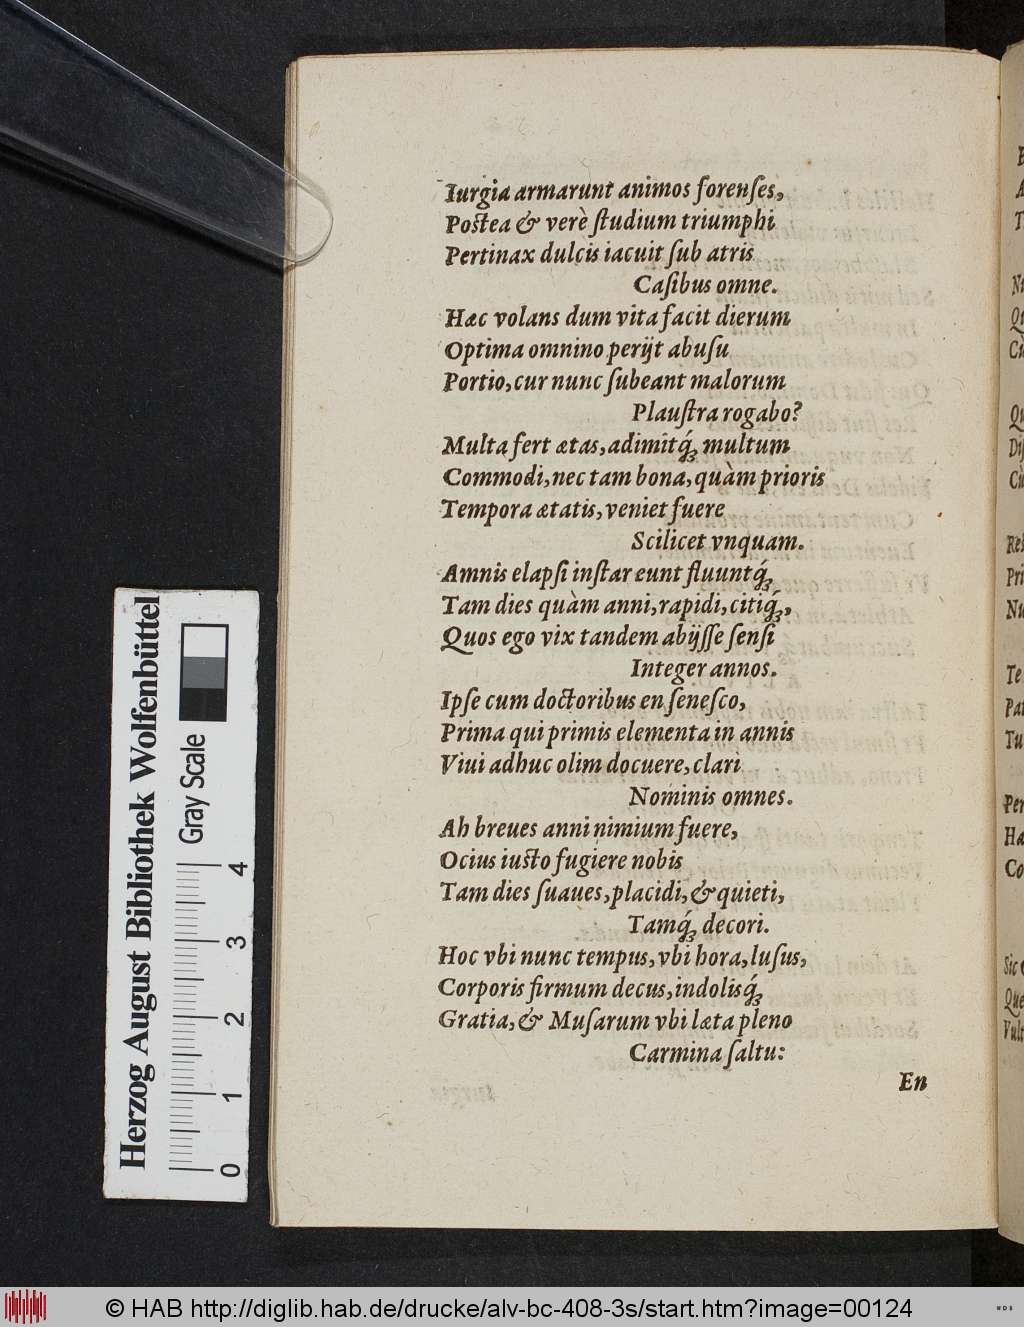 Iurgia armarunt animos forenſes,
Postea & verè ſtudium triumphi
Pertinax dulcis iacuit ſub atris
Caſibus omne.
Hæc volans dum vita facit dierum
Optima omnino perijt abuſu
Portio, cur nunc ſubeant malorum
Plauſtra rogabo?
Multa fert ætas, adimitq́ꝫ multum
Commodi, nec tam bona, quàm prioris
Tempora ætatis, veniet fuere
Scilicet vnquam.
Amnis elapſi inſtar eunt fluuntq́ꝫ
Tam dies quàm anni, rapidi, citiq́ꝫ,
Quos ego vix tandem abijſſe ſenſi
Integer annos.
Ipſe cum doctoribus en ſeneſco,
Prima qui primis elementa in annis
Viui adhuc olim docuere, clari
Nominis omnes.
Ah breues anni nimium fuere,
Ocius iusto fugiere nobis
Tam dies ſuaues, placidi, & quieti,
Tamq́ꝫ decori.
Hoc vbi nunc tempus, vbi hora, luſus,
Corporis firmum decus, indolisq́ꝫ
Gratia, & Muſarum vbi læta pleno
Carmina ſaltu:
En
Herzog August Bibliothek Wolfenbüttel
Gray Scale
0 1 2 3 4
© HAB http://diglib.hab.de/drucke/alv-bc-408-3s/start.htm?image=00124